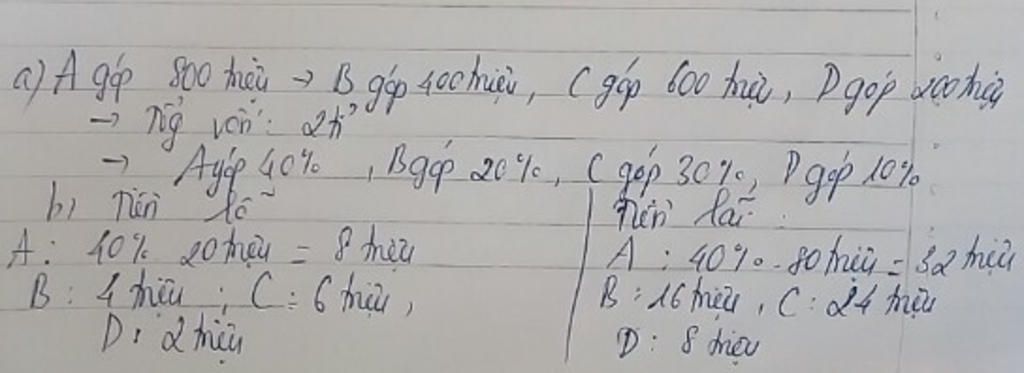 a) A góp 800 triệu → B góp 400 triệu, C góp 600 triệu, D góp 200 triệu
→ Tổng vốn: 2 tỉ
→ A góp 40%, B góp 20%, C góp 30%, D góp 10%
b) Tiền lỗ
A: 40% 20 triệu = 8 triệu
B: 4 triệu; C: 6 triệu,
D: 2 triệu
Tiền lãi:
A: 40% . 80 triệu = 32 triệu
B: 16 triệu, C: 24 triệu
D: 8 triệu